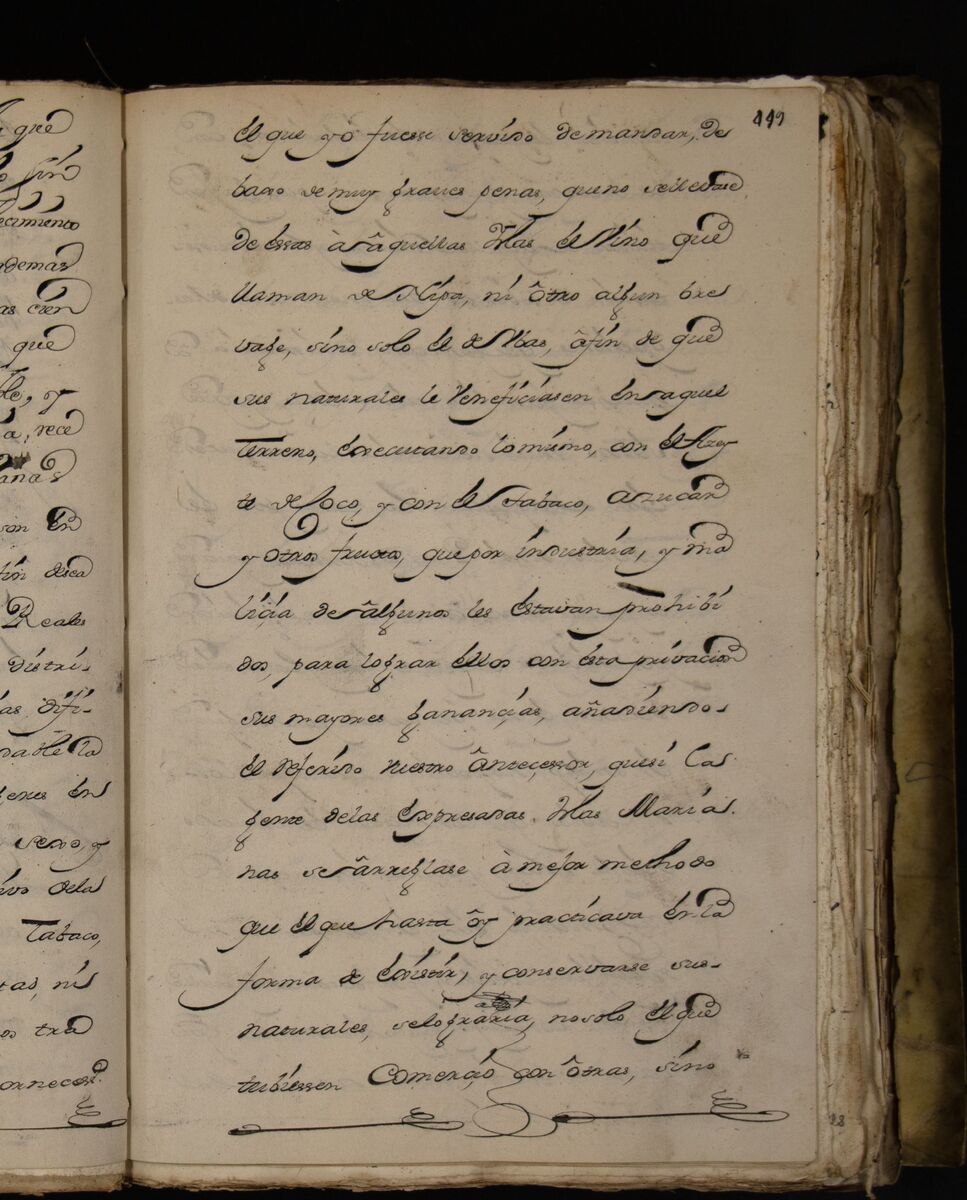 que
Sin
ecimiento
ademas
as cien
que
ble, y
a, rece
anas
son en
fin desea
Reales
distri-
as difi-
dable la
feres en
sexo, y
ivo dela
Tabaco,
tas, ni
os tra
ornecer.
449
el que yo fuesse servido demandar, de
baxo de muy graves penas, que no se llevase
de essas à aquellas Yslas el Vino que
llaman de Nipa, ni ôtro algun bre
vage, sino solo el de Vias, âfin de que
sus naturales le Veneficiasen en aquel
Terreno, executando lo mismo, con el Azey
te de Coco, y con el tabaco, azucar
y otros frutos, que por industria, y ma
liçia de âlgunos les estavan prohibi
dos, para lograr ellos con esta privacion
sus mayores ganançias, añadiendo
el referido vuestro Ântecessor, que si las
gente delas expresadas Yslas Maria
nas se ârreglase à mejor methodo
que el que hasta ôy practicava en la
forma de existir, y conservarse sus
naturales, se lograria, no solo el que
tubiessen Comerçio con ôtras, sino